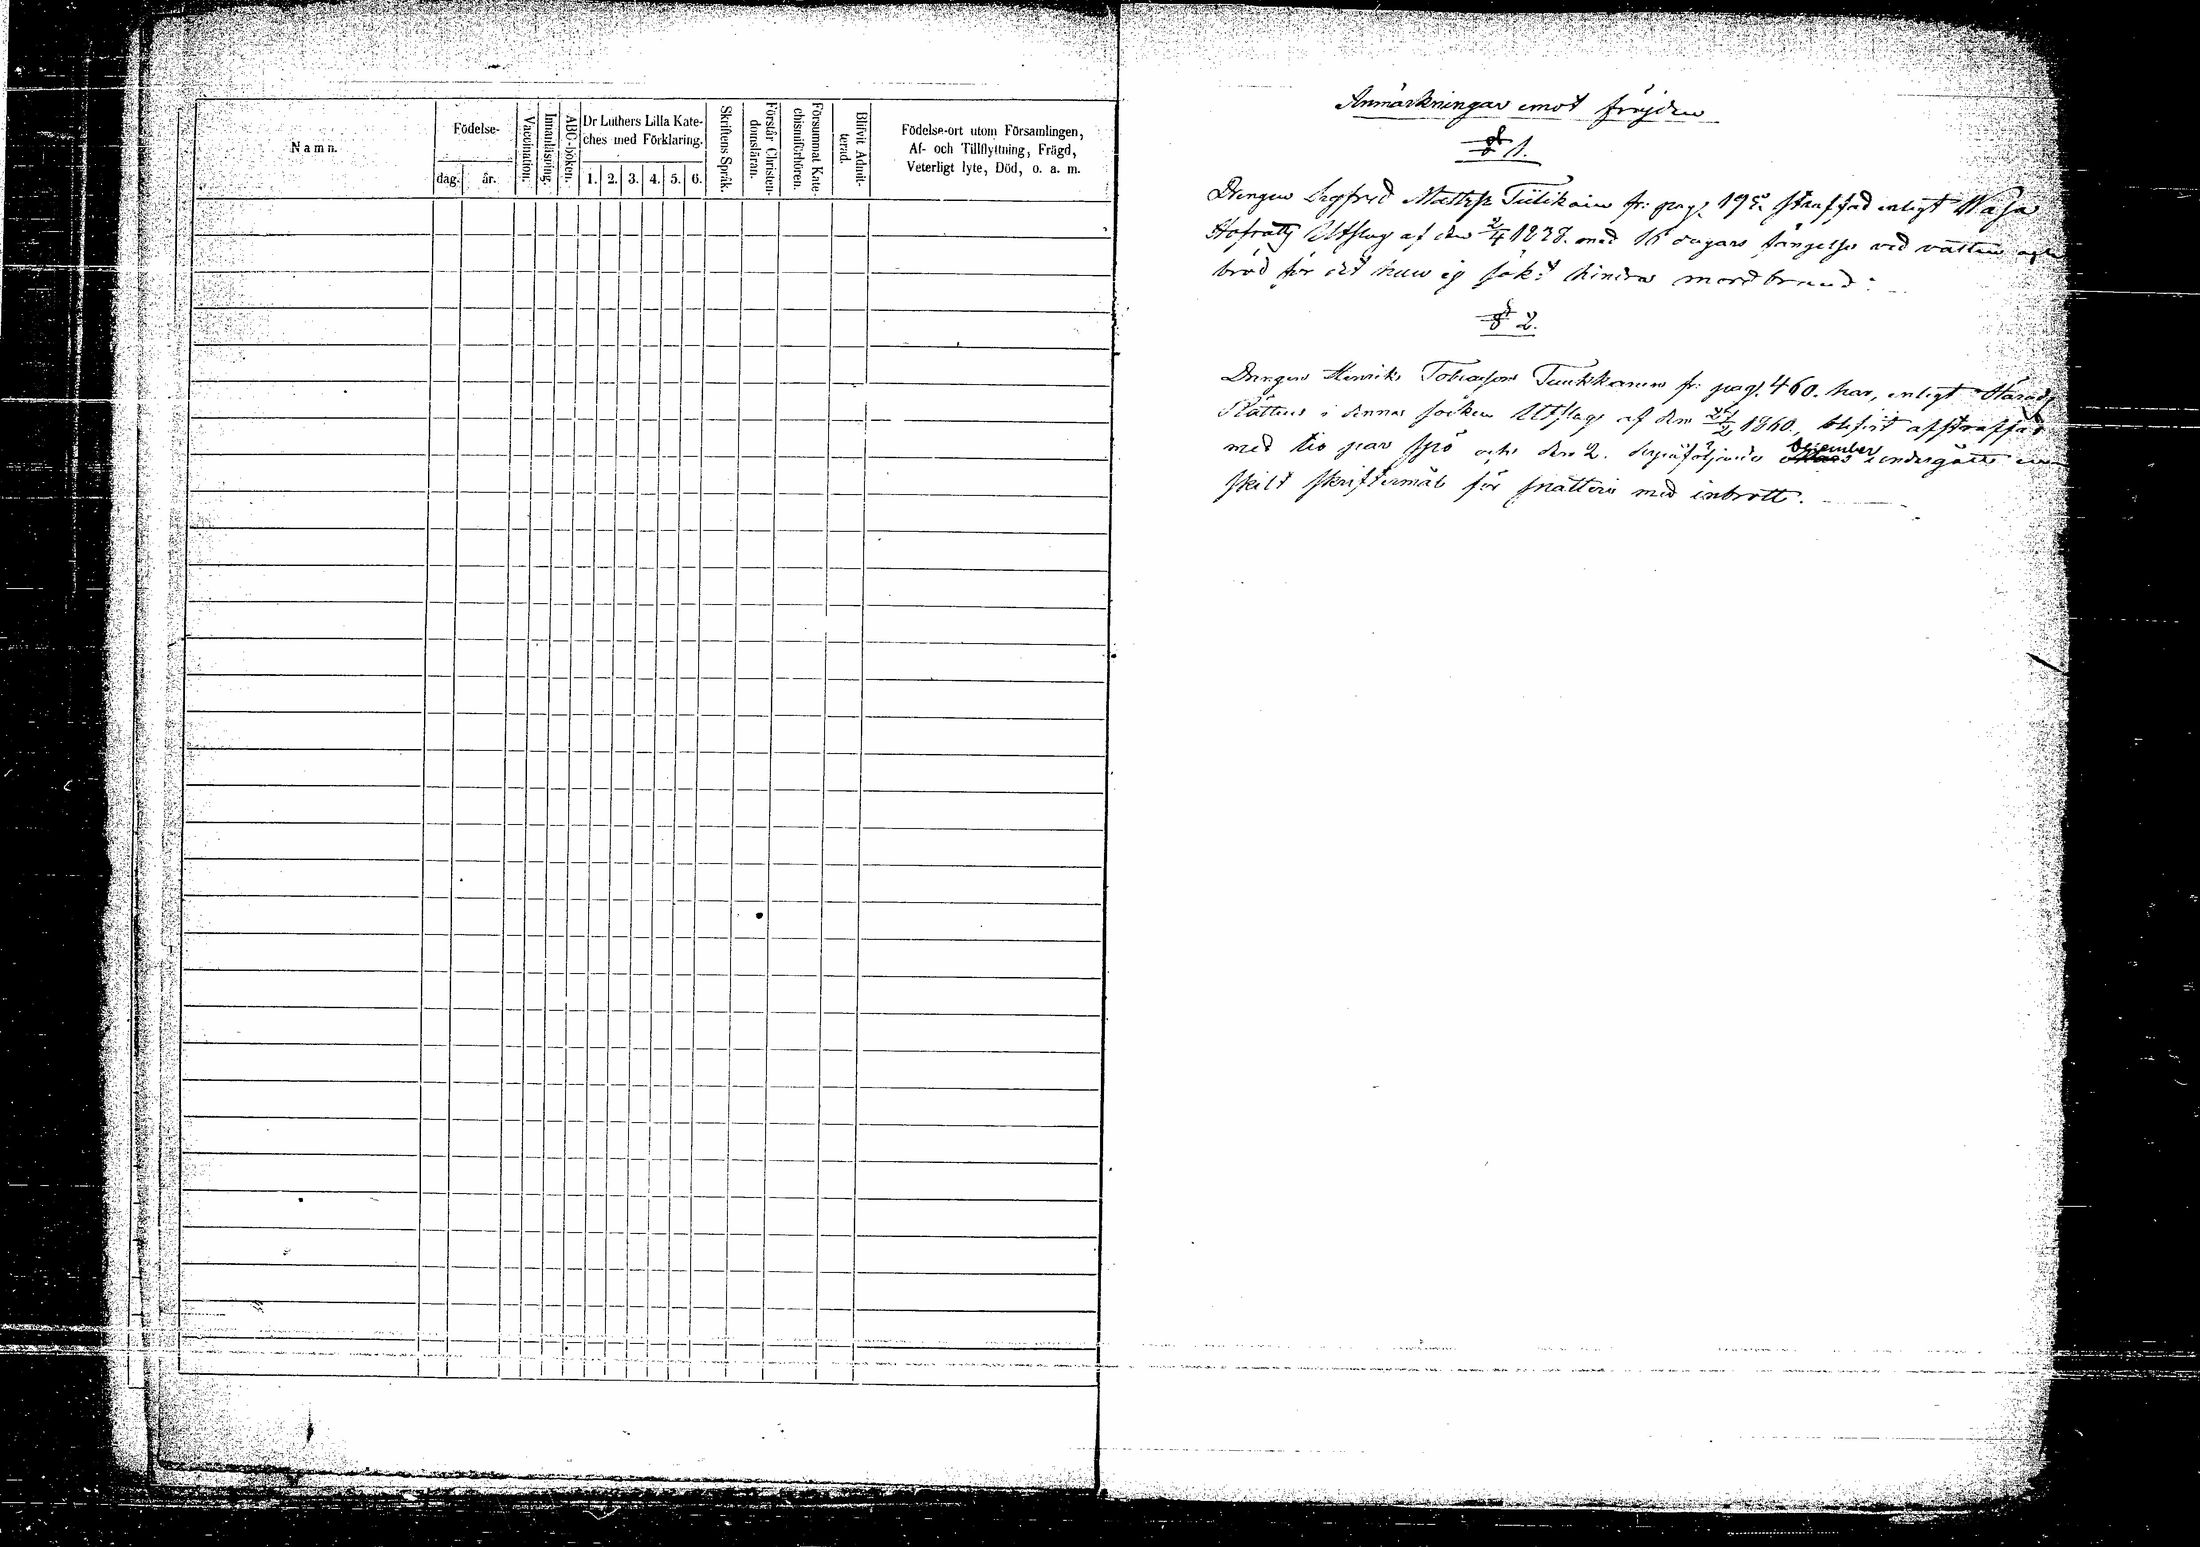 Namn.
Födelse-
dag.
år.
Vaccination.
Innanläsning.
ABC-boken.
Dr Luthers Lilla Kate-
ches med Förklaring.
1. 2. 3. 4. 5. 6.
Skriftens Språk.
Förstår Christen-
domsläran.
Försummat Kate-
chismiförhören.
Blifvit Admit-
terad.
Födelse-ort utom Församlingen,
Af- och Tillflyttning, Frägd,
Veterligt lyte, Död, o. a. m.
Anmärkningar emot fräjden
§ 1.
Drengen Sigfrid Mattss. Tiitikain fr: pag. straffad enligt Wasa
Hofrätts Utslag af den 2/4 1838 med 16 dagars fängelse vid vatten och
bröd för det han ej sökt hindra mordbrand.
§ 2.
Drengen Henrik Tobiasson fr: pag. 460. har, enligt Härads
Rättens i denna socken Utslag af den 1860, blifvit afstraffad
med tio par spö och den 2. derpåföljande December undergått en
skilt skriftermål för snatteri med inbrott.